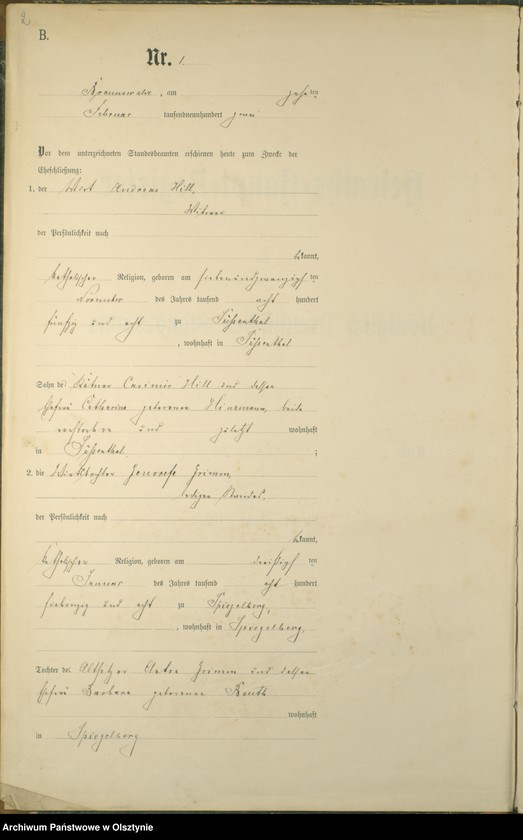 2
B.
Nr. 1.
Braunswalde, am zehnten
Februar tausendneunhundert zwei
Vor dem unterzeichneten Standesbeamten erschienen heute zum Zwecke der
Eheschließung:
1. der Wirt Andreas Hill,
Witwer
der Persönlichkeit nach
bekannt,
katholischer Religion, geboren am siebenundzwanzigsten
November des Jahres tausend acht hundert
fünfzig und acht zu Süßenthal
, wohnhaft in Süßenthal
Sohn des Kätner Casimir Hill und dessen
Ehefrau Catharina geborenen Hinzmann, beide
verstorben und zuletzt wohnhaft
in Süßenthal ;
2. die Wirthstochter Grimm,
ledigen Standes,
der Persönlichkeit nach
bekannt,
katholischer Religion, geboren am dreißigsten
Januar des Jahres tausend acht hundert
siebenzig und acht zu Spiegelberg,
, wohnhaft in Spiegelberg,
Tochter des Altsitzer Grimm und dessen
Ehefrau Barbara geborenen
wohnhaft
in Spiegelberg
Archiwum Państwowe w Olsztynie